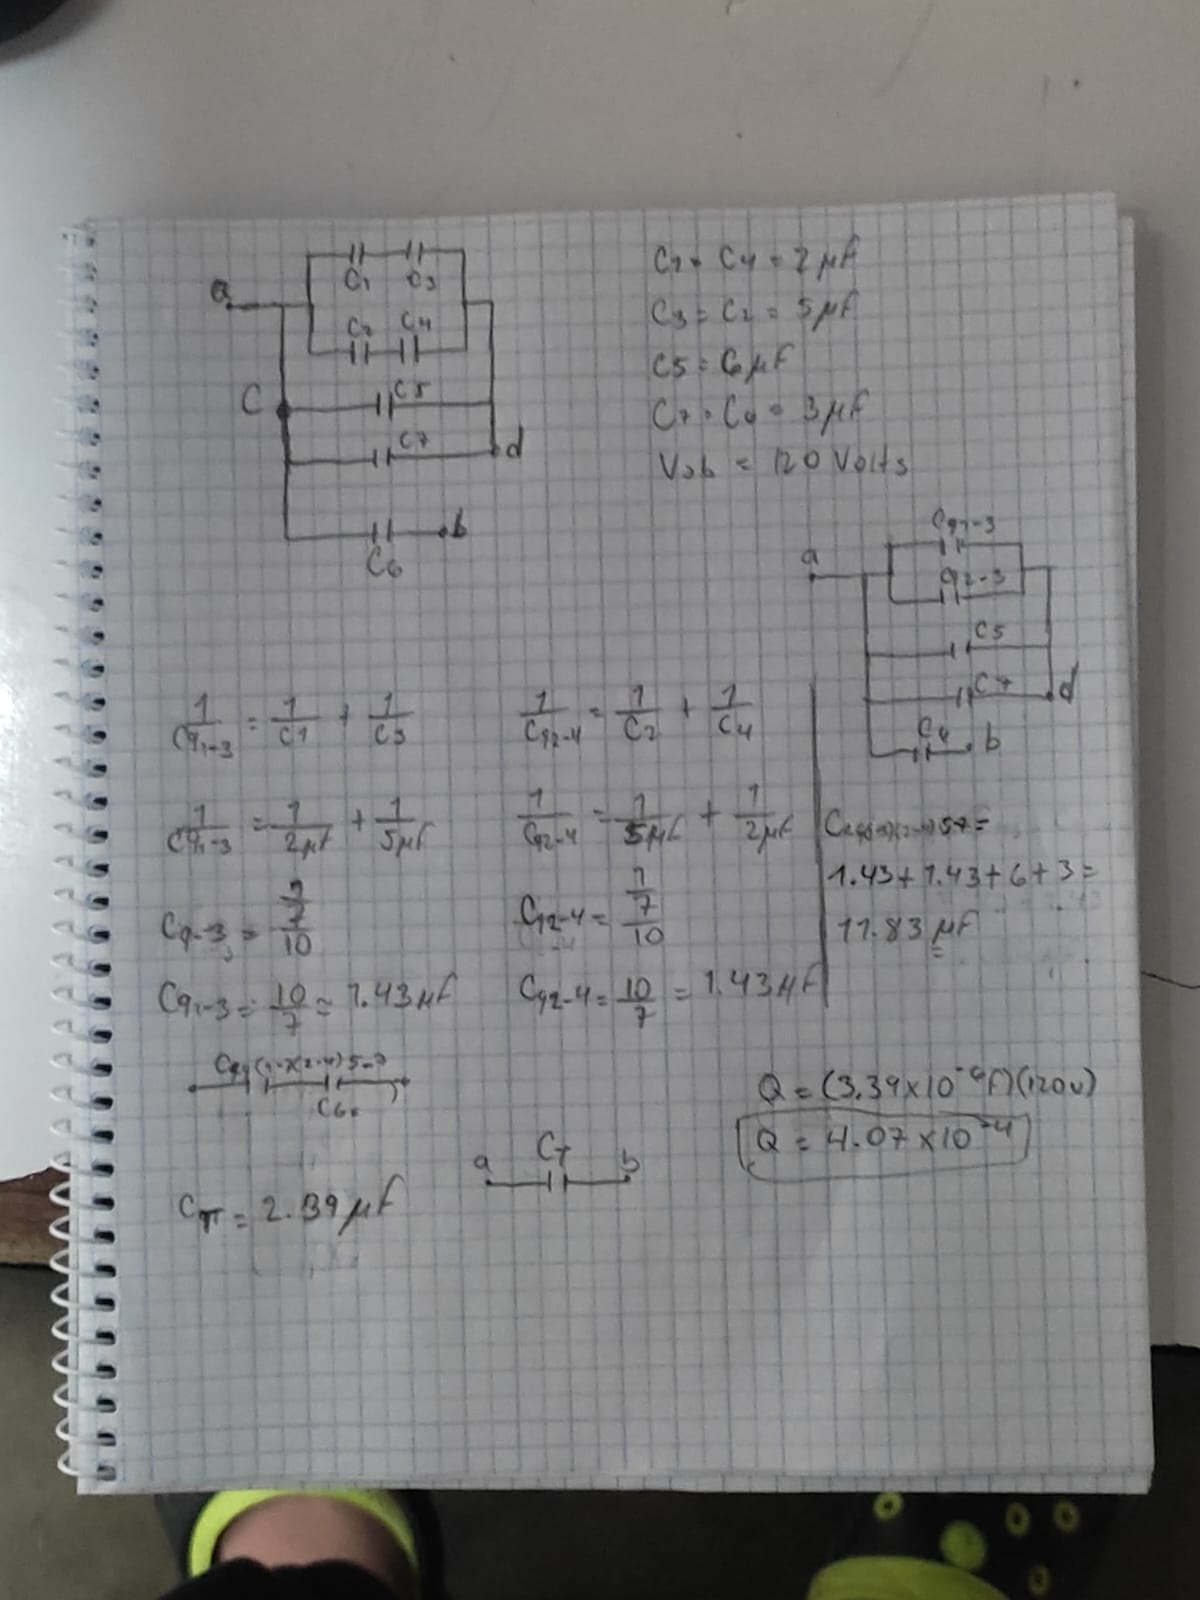 a
C1 C3
C2 C4
C C5
C7 d
C6 b
C1 = C4 = 2 μF
C3 = C2 = 5 μF
C5 = 6 μF
C7 = C6 = 3 μF
Vab = 120 Volts
a Cq1-3
Cq2-3
C5
C7 d
b
1/Cq1-3 = 1/C1 + 1/C3
1/Cq1-3 = 1/2μF + 1/5μF
Cq1-3 = 10/7 = 1.43 μF
1/Cq2-4 = 1/C2 + 1/C4
1/Cq2-4 = 1/5μF + 1/2μF
Cq2-4 = 1/7/10
Cq2-4 = 10/7 = 1.43 μF
1.43 + 1.43 + 6 + 3 =
11.83 μF
C6
a CT b
CT = 2.39 μF
Q = (3.39 x 10⁻⁶F)(120v)
Q = 4.07 x 10⁻⁴